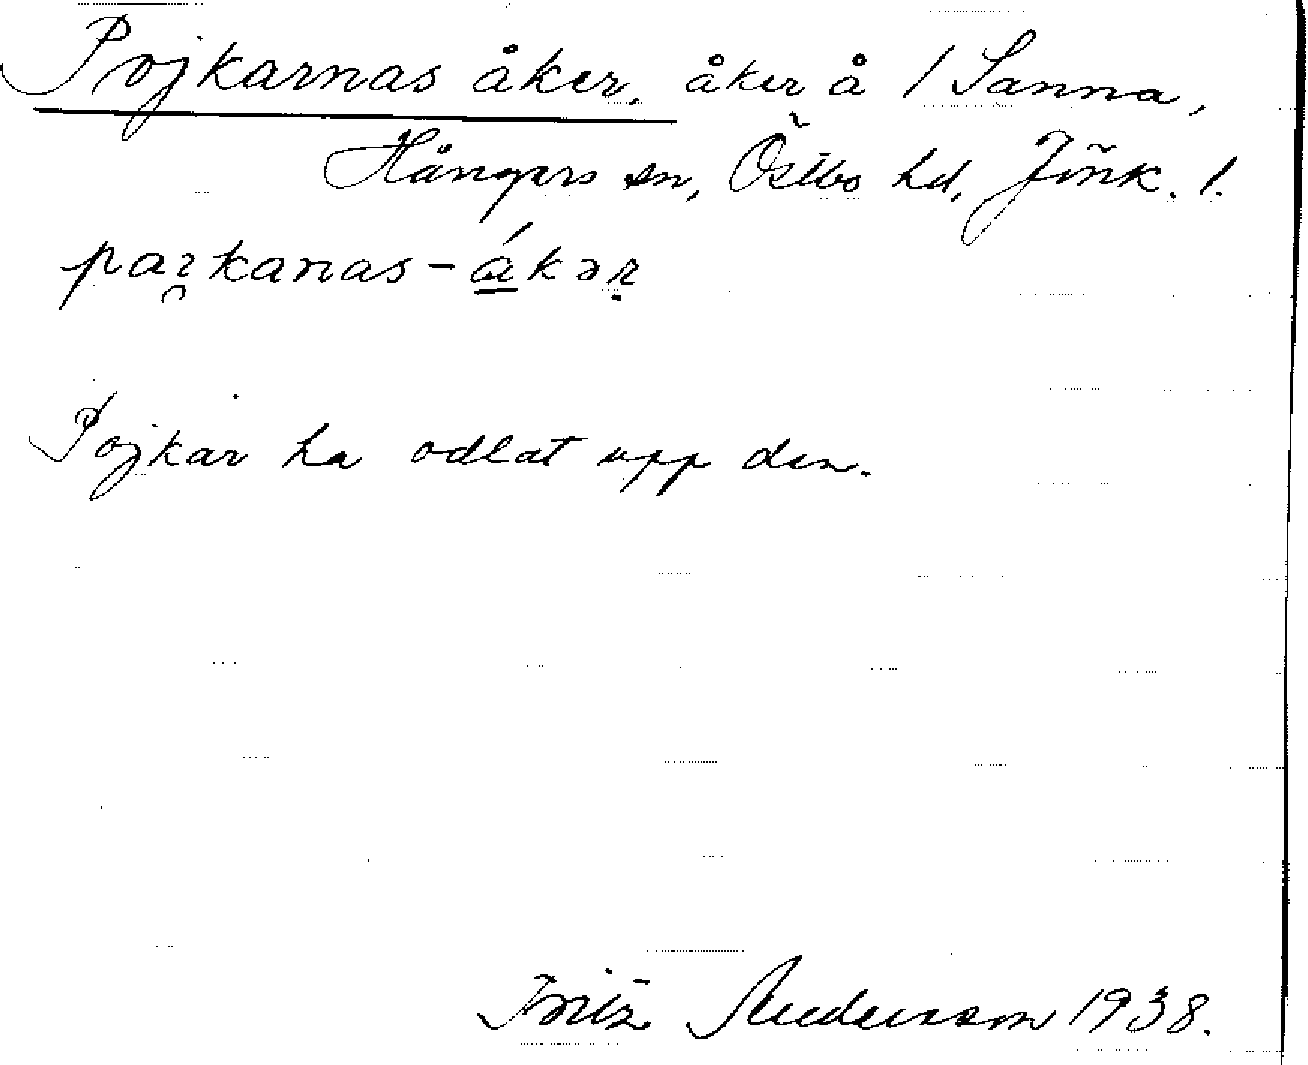 Pojkarnas åker, åker å 1 Sanna,
Hångers sn, Östbo hd, Jönk. l.
paı̯kanas-ákər
Pojkar ha odlat upp den.
Fritz Andersson 1938.